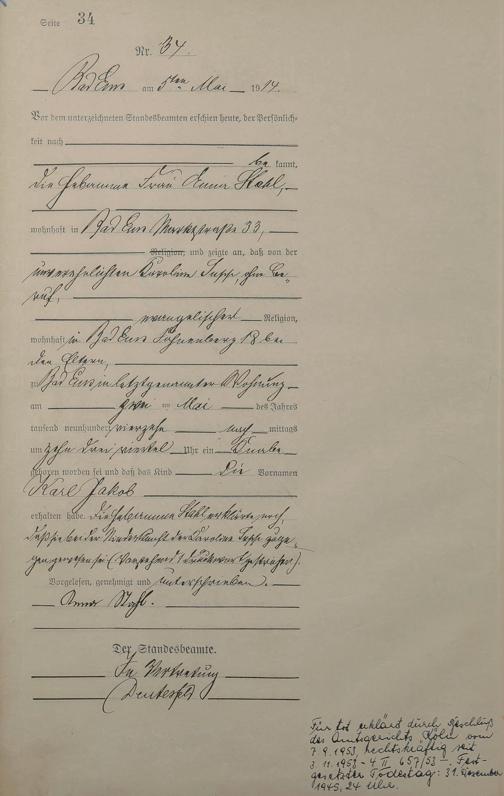 Seite 34
Nr. 34.
Bad Ems am 5ten Mai 1914.
Vor dem unterzeichneten Standesbeamten erschien heute, der Persönlich-
keit nach
be kannt,
die Hebamme Frau Anna Stahl,
wohnhaft in Bad Ems Marktstraße 33,
Religion, und zeigte an, daß von der
unverehelichten Karoline ohne Be-
ruf,
evangelischer Religion,
wohnhaft in Bad Ems 18 bei
den Eltern,
zu Bad Ems in letztgenannter Wohnung
am zwei ten Mai des Jahres
tausend neunhundert vierzehn nach mittags
um zehn drei viertel Uhr ein Knabe
geboren worden sei und daß das Kind die Vornamen
Karl Jakob
erhalten habe. Die Hebamme Stahl erklärte noch,
daß sie bei der Niederkunft der Karoline zuge-
gen gewesen sei (Vorstehend 1 Druckwort gestrichen).
Vorgelesen, genehmigt und unterschrieben.
Anna Stahl.
Der Standesbeamte.
In Vertretung
Für tot erklärt durch Beschluß
des Amtsgerichts Köln vom
7.9.1953, rechtskräftig seit
3.11.1953 - 4 II 657/53 -. Fest-
gesetzter Todestag: 31. Dezember
1945, 24 Uhr.